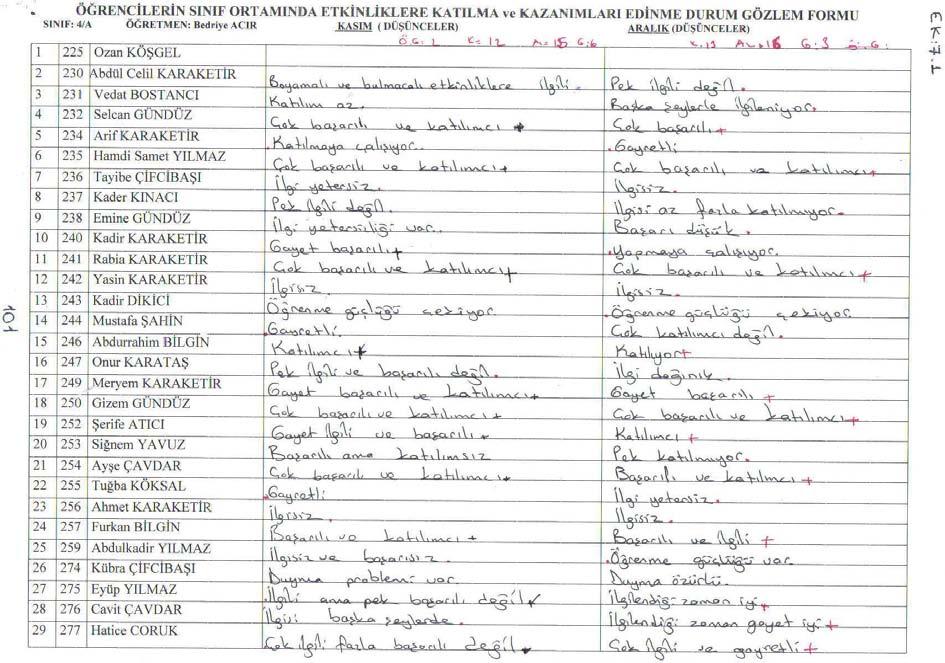 ÖĞRENCİLERİN SINIF ORTAMINDA ETKİNLİKLERE KATILMA ve KAZANIMLARI EDİNME DURUM GÖZLEM FORMU
SINIF: 4/A ÖĞRETMEN: Bedriye ACIR KASIM ( DÜŞÜNCELER) ARALIK (DÜŞÜNCELER)
Ö.G: 2 K= 12 A= 15 G:6 K.13 G:3 Ö.G:
EK:7.1
1 225 Ozan KÖŞGEL
2 230 Abdül Celil KARAKETİR Boyamalı ve bulmacalı etkinliklere ilgili. Pek ilgili değil.
3 231 Vedat BOSTANCI Katılım az. Başka şeylerle ilgileniyor.
4 232 Selcan GÜNDÜZ Çok başarılı ve katılımcı + Çok başarılı +
5 234 Arif KARAKETİR Katılmaya çalışıyor. Gayretli
6 235 Hamdi Samet YILMAZ Çok başarılı ve katılımcı + Çok başarılı ve katılımcı +
7 236 Tayibe ÇİFCİBAŞI İlgi yetersiz. İlgisiz.
8 237 Kader KINACI Pek ilgili değil. İlgisi az fazla katılmıyor.
9 238 Emine GÜNDÜZ İlgi yetersizliği var. Başarı düşük.
10 240 Kadir KARAKETİR Gayet başarılı + Yapmaya çalışıyor.
11 241 Rabia KARAKETİR Çok başarılı ve katılımcı + Çok başarılı ve katılımcı +
12 242 Yasin KARAKETİR İlgisiz. İlgisiz.
13 243 Kadir DİKİCİ Öğrenme güçlüğü çekiyor Öğrenme güçlüğü çekiyor.
14 244 Mustafa ŞAHİN Gayretli. Çok katılımcı değil.
15 246 Abdurrahim BİLGİN Katılımcı + Katılıyor +
16 247 Onur KARATAŞ Pek ilgili ve başarılı değil. İlgi değinik.
17 249 Meryem KARAKETİR Gayet başarılı ve katılımcı + Gayet başarılı +
18 250 Gizem GÜNDÜZ Çok başarılı ve katılımcı + Çok başarılı ve katılımcı +
19 252 Şerife ATICI Gayet ilgili ve başarılı + Katılımcı +
20 253 Siğnem YAVUZ Başarılı ama katılımsız Pek katılmıyor.
21 254 Ayşe ÇAVDAR Çok başarılı ve katılımcı + Başarılı ve katılımcı +
22 255 Tuğba KÖKSAL Gayretli İlgi yetersiz.
23 256 Ahmet KARAKETİR İlgisiz. İlgisiz.
24 257 Furkan BİLGİN Başarılı ve katılımcı + Başarılı ve ilgili +
25 259 Abdulkadir YILMAZ İlgisiz ve başarısız. Öğrenme güçlüğü var.
26 274 Kübra ÇİFCİBAŞI Duyma problemi var. Duyma özürlü.
27 275 Eyüp YILMAZ İlgili ama pek başarılı değil + İlgilendiği zaman iyi +
28 276 Cavit ÇAVDAR İlgisi başka şeylerde. İlgilendiği zaman gayet iyi +
29 277 Hatice CORUK Çok ilgili fazla başarılı değil. Çok ilgili ve gayretli +
101